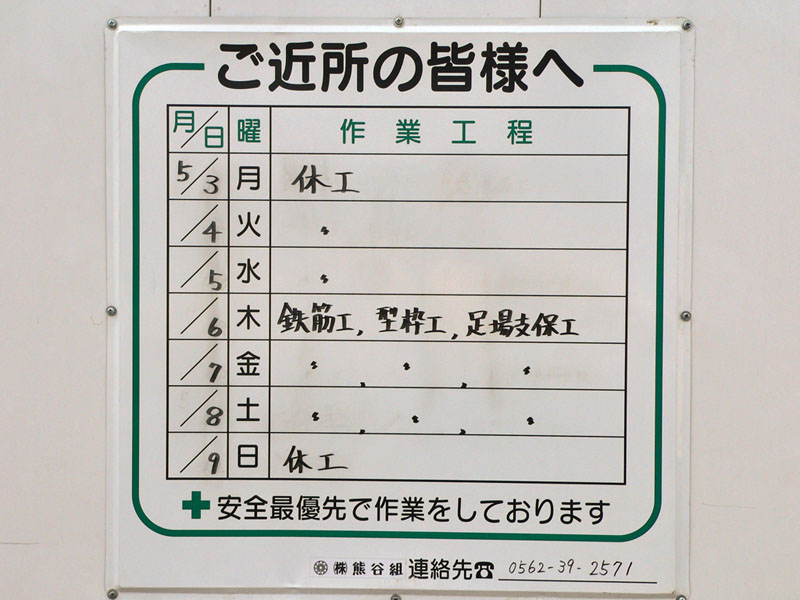 ご近所の皆様へ
月/日 曜 作業工程
5/3 月 休工
/4 火 〃
/5 水 〃
/6 木 鉄筋工, 型枠工, 足場支保工
/7 金 〃 , 〃 , 〃
/8 土 〃 , 〃 , 〃
/9 日 休工
✚安全最優先で作業をしております
㈱熊谷組 連絡先☎ 0562-39-2571